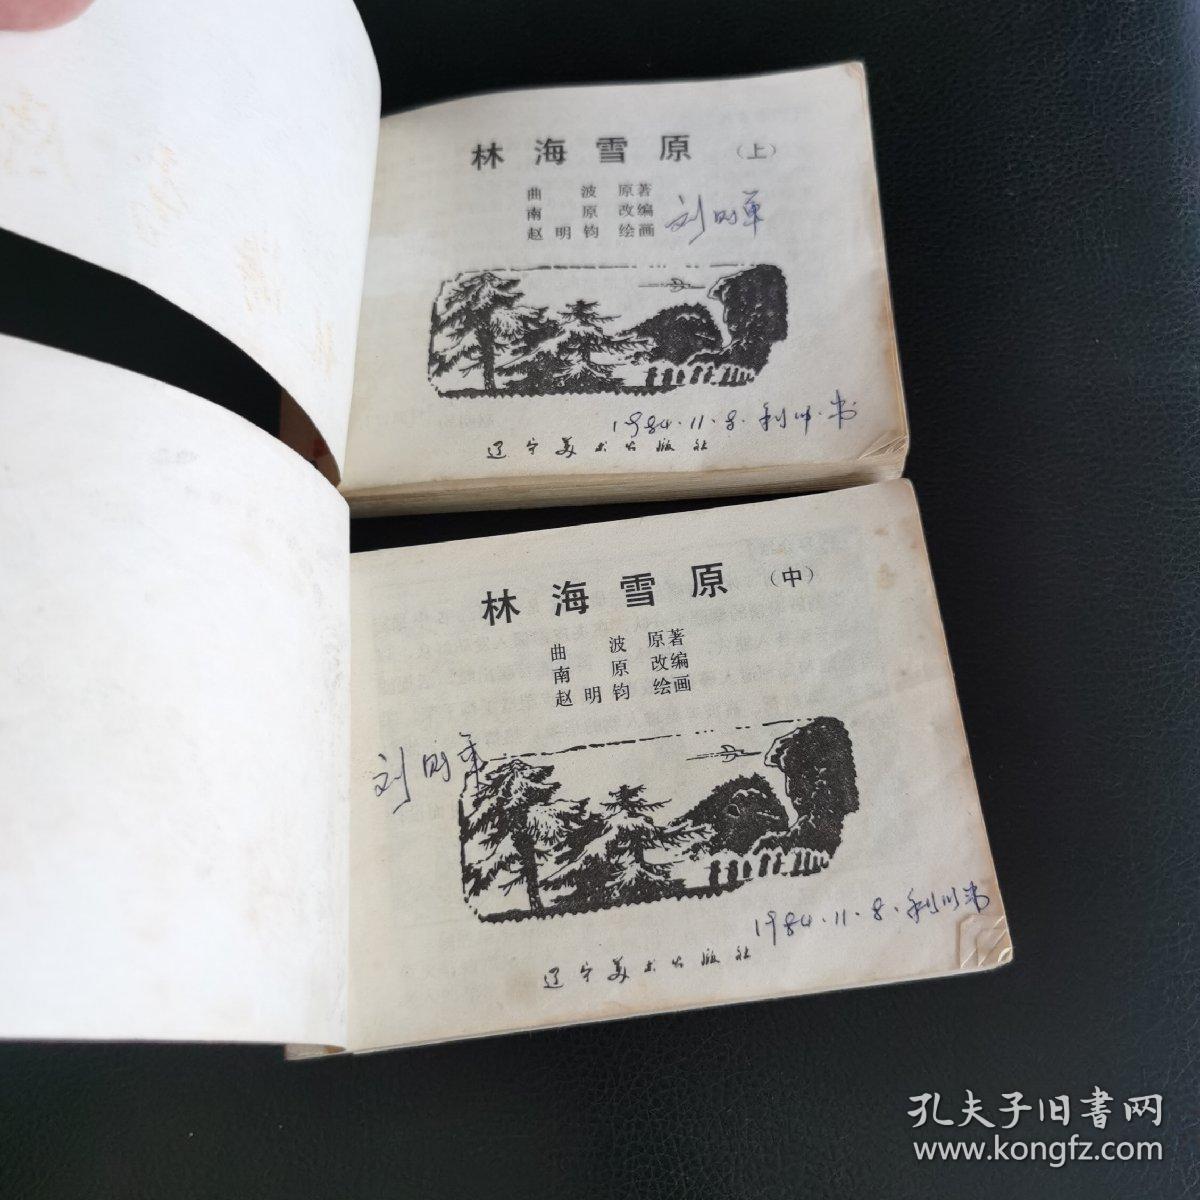 林海雪原（上）
曲波 原著
南原 改编
赵明钧 绘画
1984.11.8.
辽宁美术出版社
林海雪原（中）
曲波 原著
南原 改编
赵明钧 绘画
1984.11.8.
辽宁美术出版社
孔夫子旧书网
www.kongfz.com